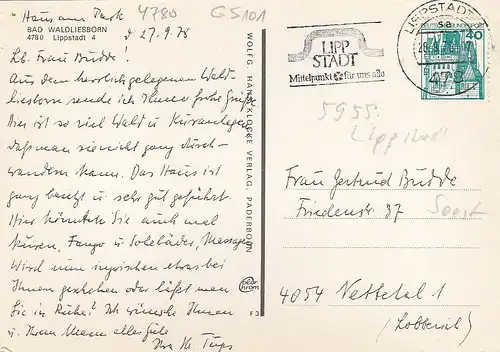 "Haus am Park"
BAD WALDLIESBORN
4780 Lippstadt 4
d 27.9.78
4780
GS101
Lb. Frau Budde!
Aus dem herrlich gelegenen Wald-
liesborn sende ich Ihnen frohe Grüße
Hier ist so viel Wald u. Kuranlagen,
daß man sie nicht ganz durch-
wandern kann. Das Haus ist
ganz besetzt u. sehr gut geführt.
Hier könnten Sie auch mal
kuren, Fango u. Solebäder, Massagen
Wird nun inzwischen etwas bei
Ihnen geschehen oder läßt man
Sie in Ruhe? Ich wünsche Ihnen
u. Ihrem Mann alles Gute
Ihre
WOLFG. HANS KLOCKE VERLAG, PADERBORN
F 3
LIPP
STADT
Mittelpunkt für uns alle
LIPPSTADT
sa
478
DEUTSCHE BUNDESPOST
40
5955
Lippstadt
Frau Gertrud Budde
Friedenstr. 37
Soest
4054 Nettetal 1
(Lobberich)